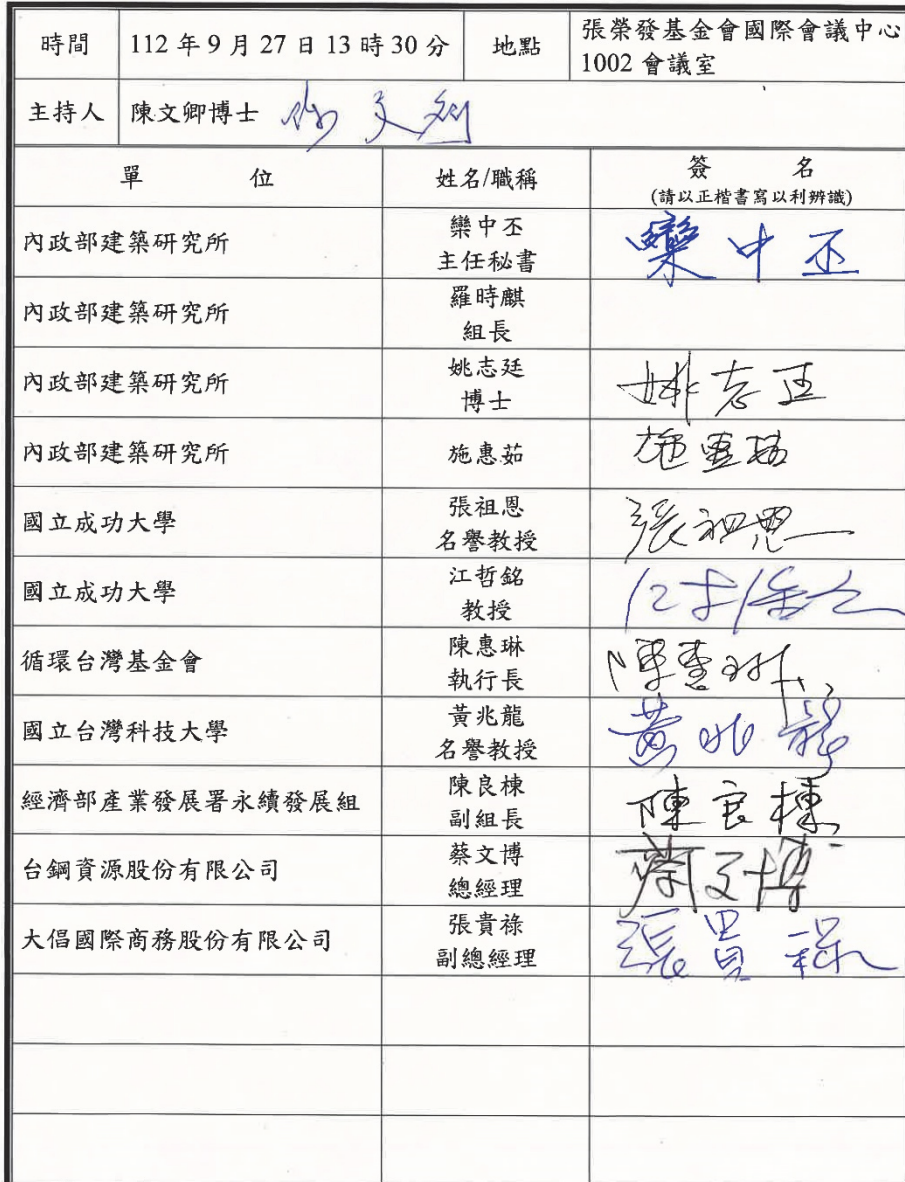 時間 112 年 9 月 27 日 13 時 30 分 地點 張榮發基金會國際會議中心
1002 會議室
主持人 陳文卿博士 陳文卿
單 位 姓名/職稱 簽 名
(請以正楷書寫以利辨識)
內政部建築研究所 欒中丕 欒中丕
主任秘書
內政部建築研究所 羅時麒
組長
內政部建築研究所 姚志廷 姚志廷
博士
內政部建築研究所 施惠茹 施惠茹
國立成功大學 張祖恩 張祖恩
名譽教授
國立成功大學 江哲銘 江哲銘
教授
循環台灣基金會 陳惠琳 陳惠琳
執行長
國立台灣科技大學 黃兆龍 黃兆龍
名譽教授
經濟部產業發展署永續發展組 陳良棟 陳良棟
副組長
台鋼資源股份有限公司 蔡文博 蔡文博
總經理
大倡國際商務股份有限公司 張貴祿 張貴祿
副總經理